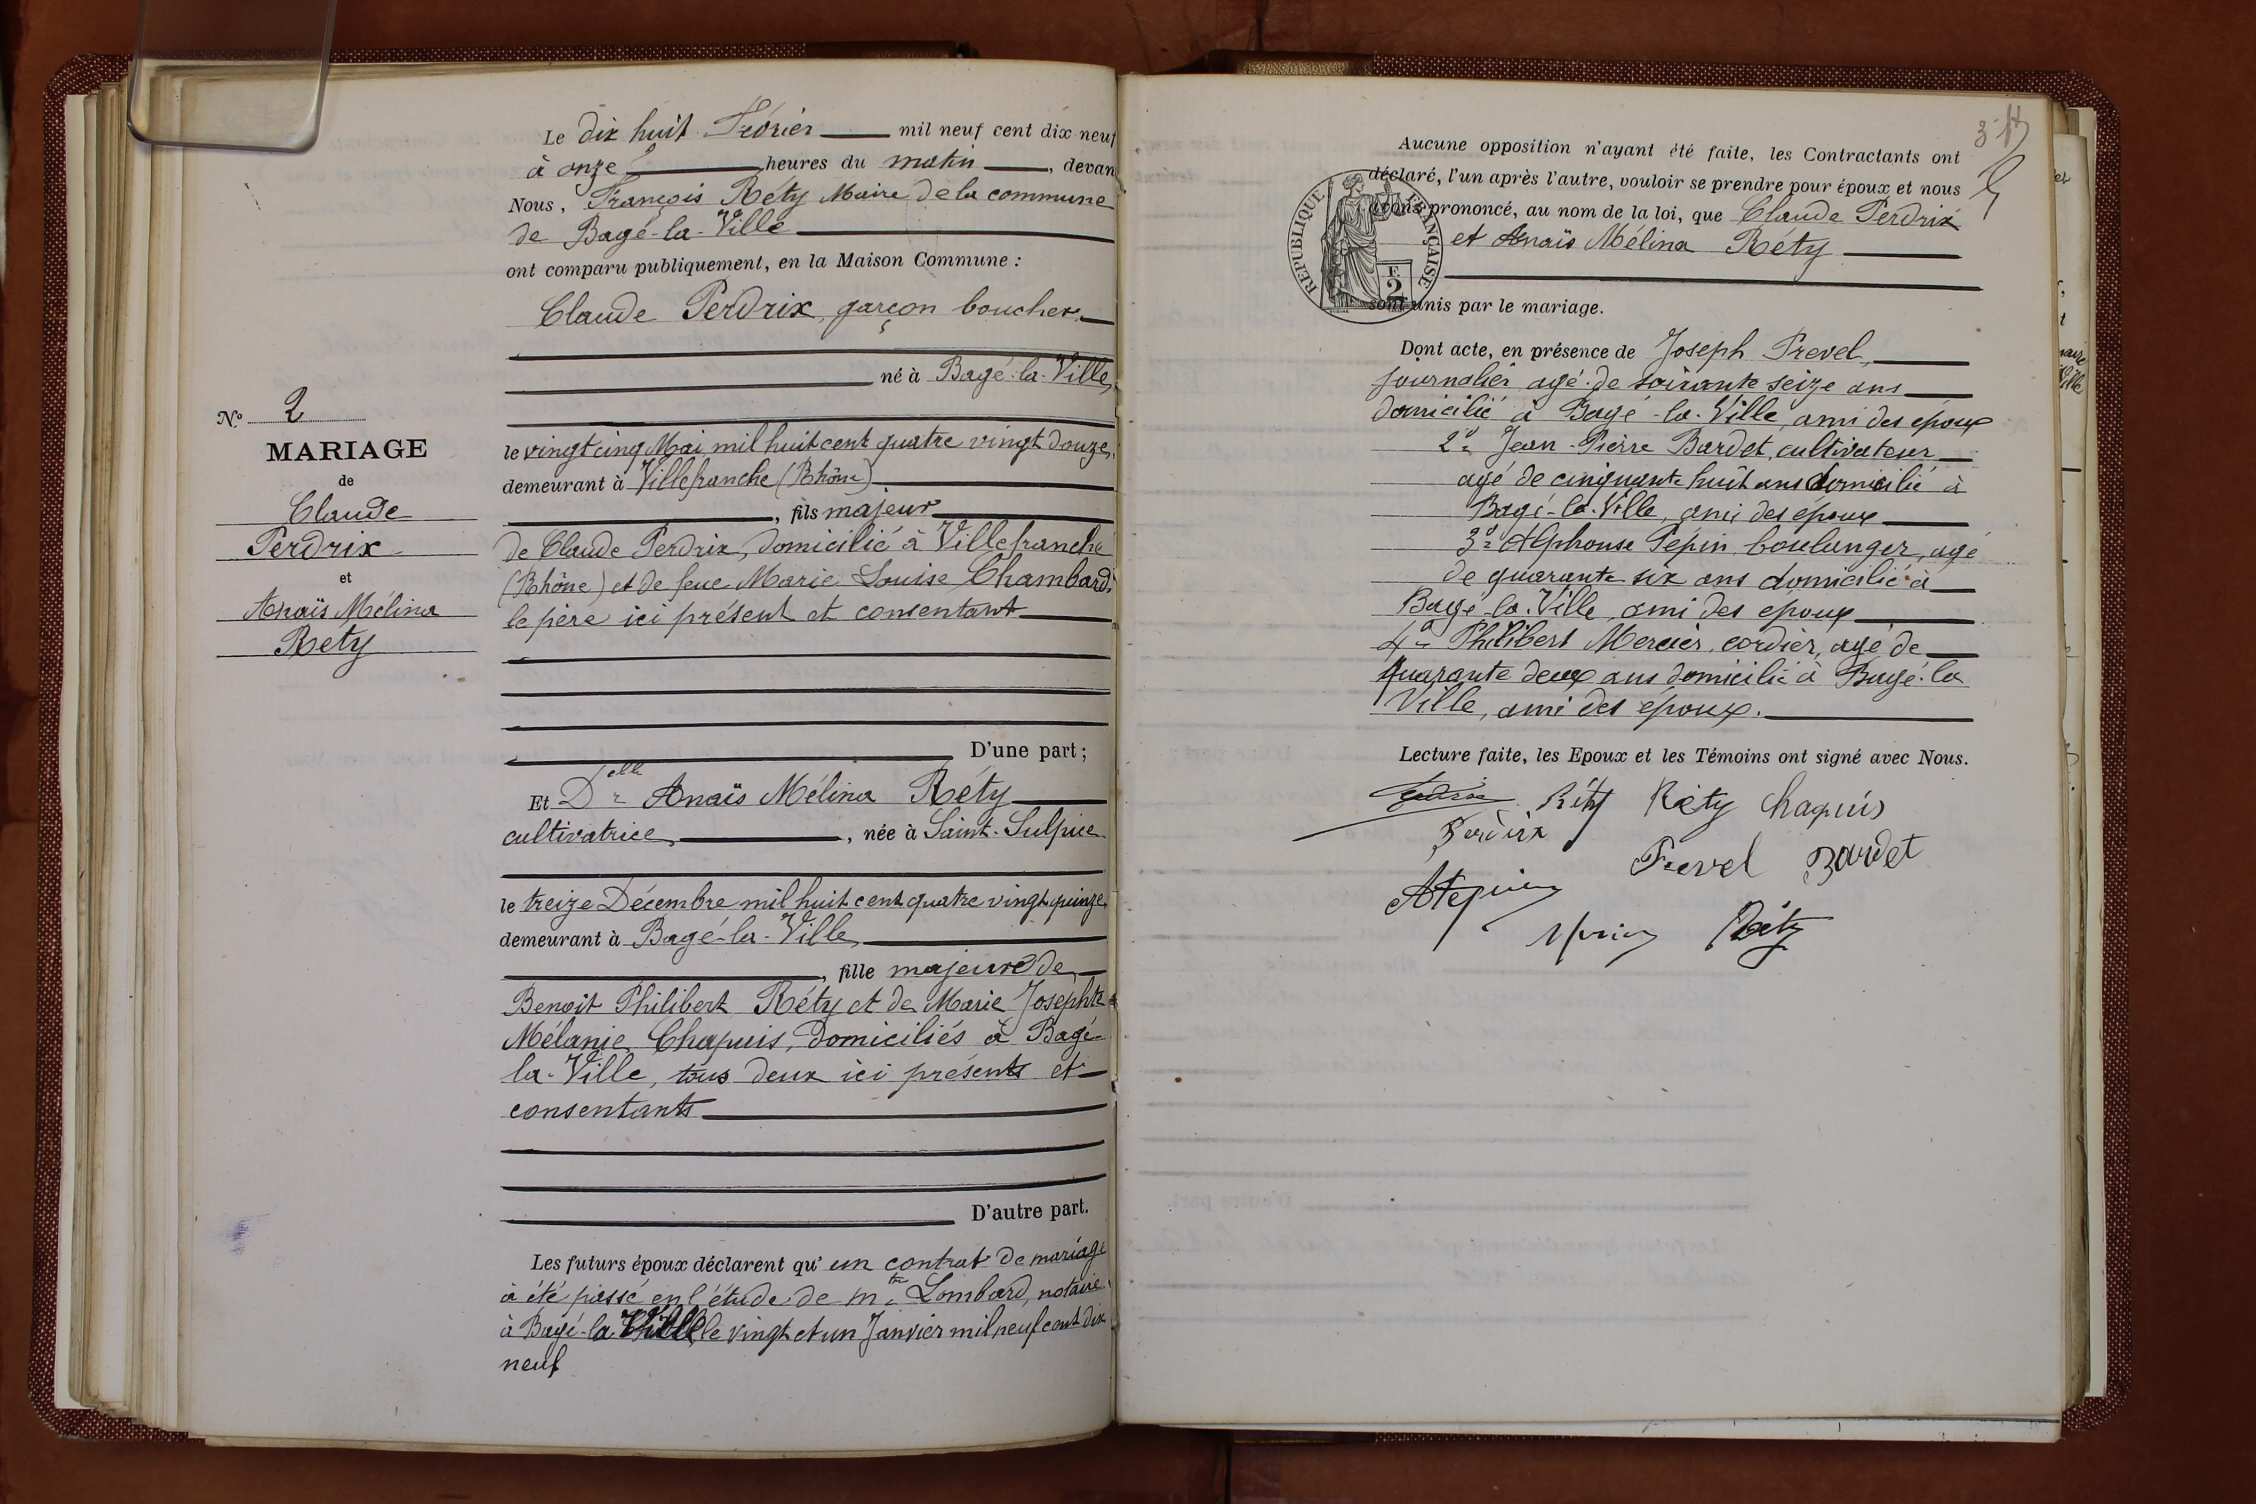 Le dix huit Février mil neuf cent dix neuf
à onze heures du matin, devan
Nous, François Réty Maire de la commune
de Bagé-la-Ville
ont comparu publiquement, en la Maison Commune :
Claude Perdrix, garçon boucher
né à Bagé-la-Ville,
le vingt cinq Mai mil huit cent quatre vingt douze,
demeurant à Villefranche (Rhône)
, fils majeur
de Claude Perdrix, domicilié à Villefranche
(Rhône) et de feue Marie Louise Chambard,
le père ici présent et consentant
D'une part ;
Et Delle Anaïs Mélina Réty
cultivatrice, née à Saint-Sulpice
le treize Décembre mil huit cent quatre vingt quinze
demeurant à Bagé-la-Ville,
, fille majeure de
Benoit Philibert Réty et de Marie Josephte
Mélanie Chapuis, domiciliés à Bagé-
la-Ville, tous deux ici présents et
consentants
D'autre part.
Les futurs époux déclarent qu'un contrat de mariage
à été passé en l'étude de Mtre Lombard, notaire
à Bagé-la-Ville le vingt et un Janvier mil neuf cent dix
neuf
No 2
MARIAGE
de
Claude
Perdrix
et
Anaïs Mélina
Réty
Aucune opposition n'ayant été faite, les Contractants ont
déclaré, l'un après l'autre, vouloir se prendre pour époux et nous
avons prononcé, au nom de la loi, que Claude Perdrix
et Anaïs Mélina Réty
sont unis par le mariage.
REPUBLIQUE FRANÇAISE
F.
2
Dont acte, en présence de Joseph Prevel,
journalier agé de soixante seize ans
domicilié à Bagé-la-Ville, ami des époux
2o Jean-Pierre Bardet, cultivateur
agé de cinquante huit ans domicilié à
Bagé-la-Ville, ami des epoux
3o Alphonse Pépin boulanger, agé
de quarante six ans domicilié à
Bagé-la-Ville, ami des epoux
4o Philibert Mercier, cordier, agé de
quarante deux ans domicilié à Bagé-la
Ville, ami des époux.
Lecture faite, les Epoux et les Témoins ont signé avec Nous.
Réty Réty Chapuis
Perdrix
Prevel Bardet
APepin
Réty